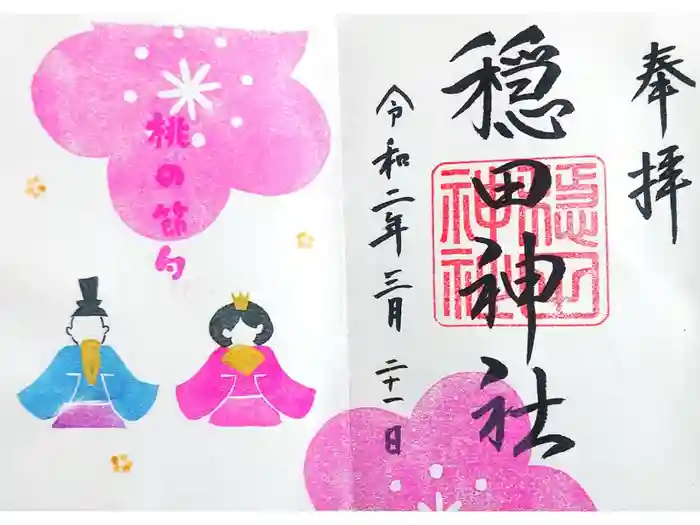 奉拝
穏田神社
穏田神社
令和二年三月二十一日
桃の節句